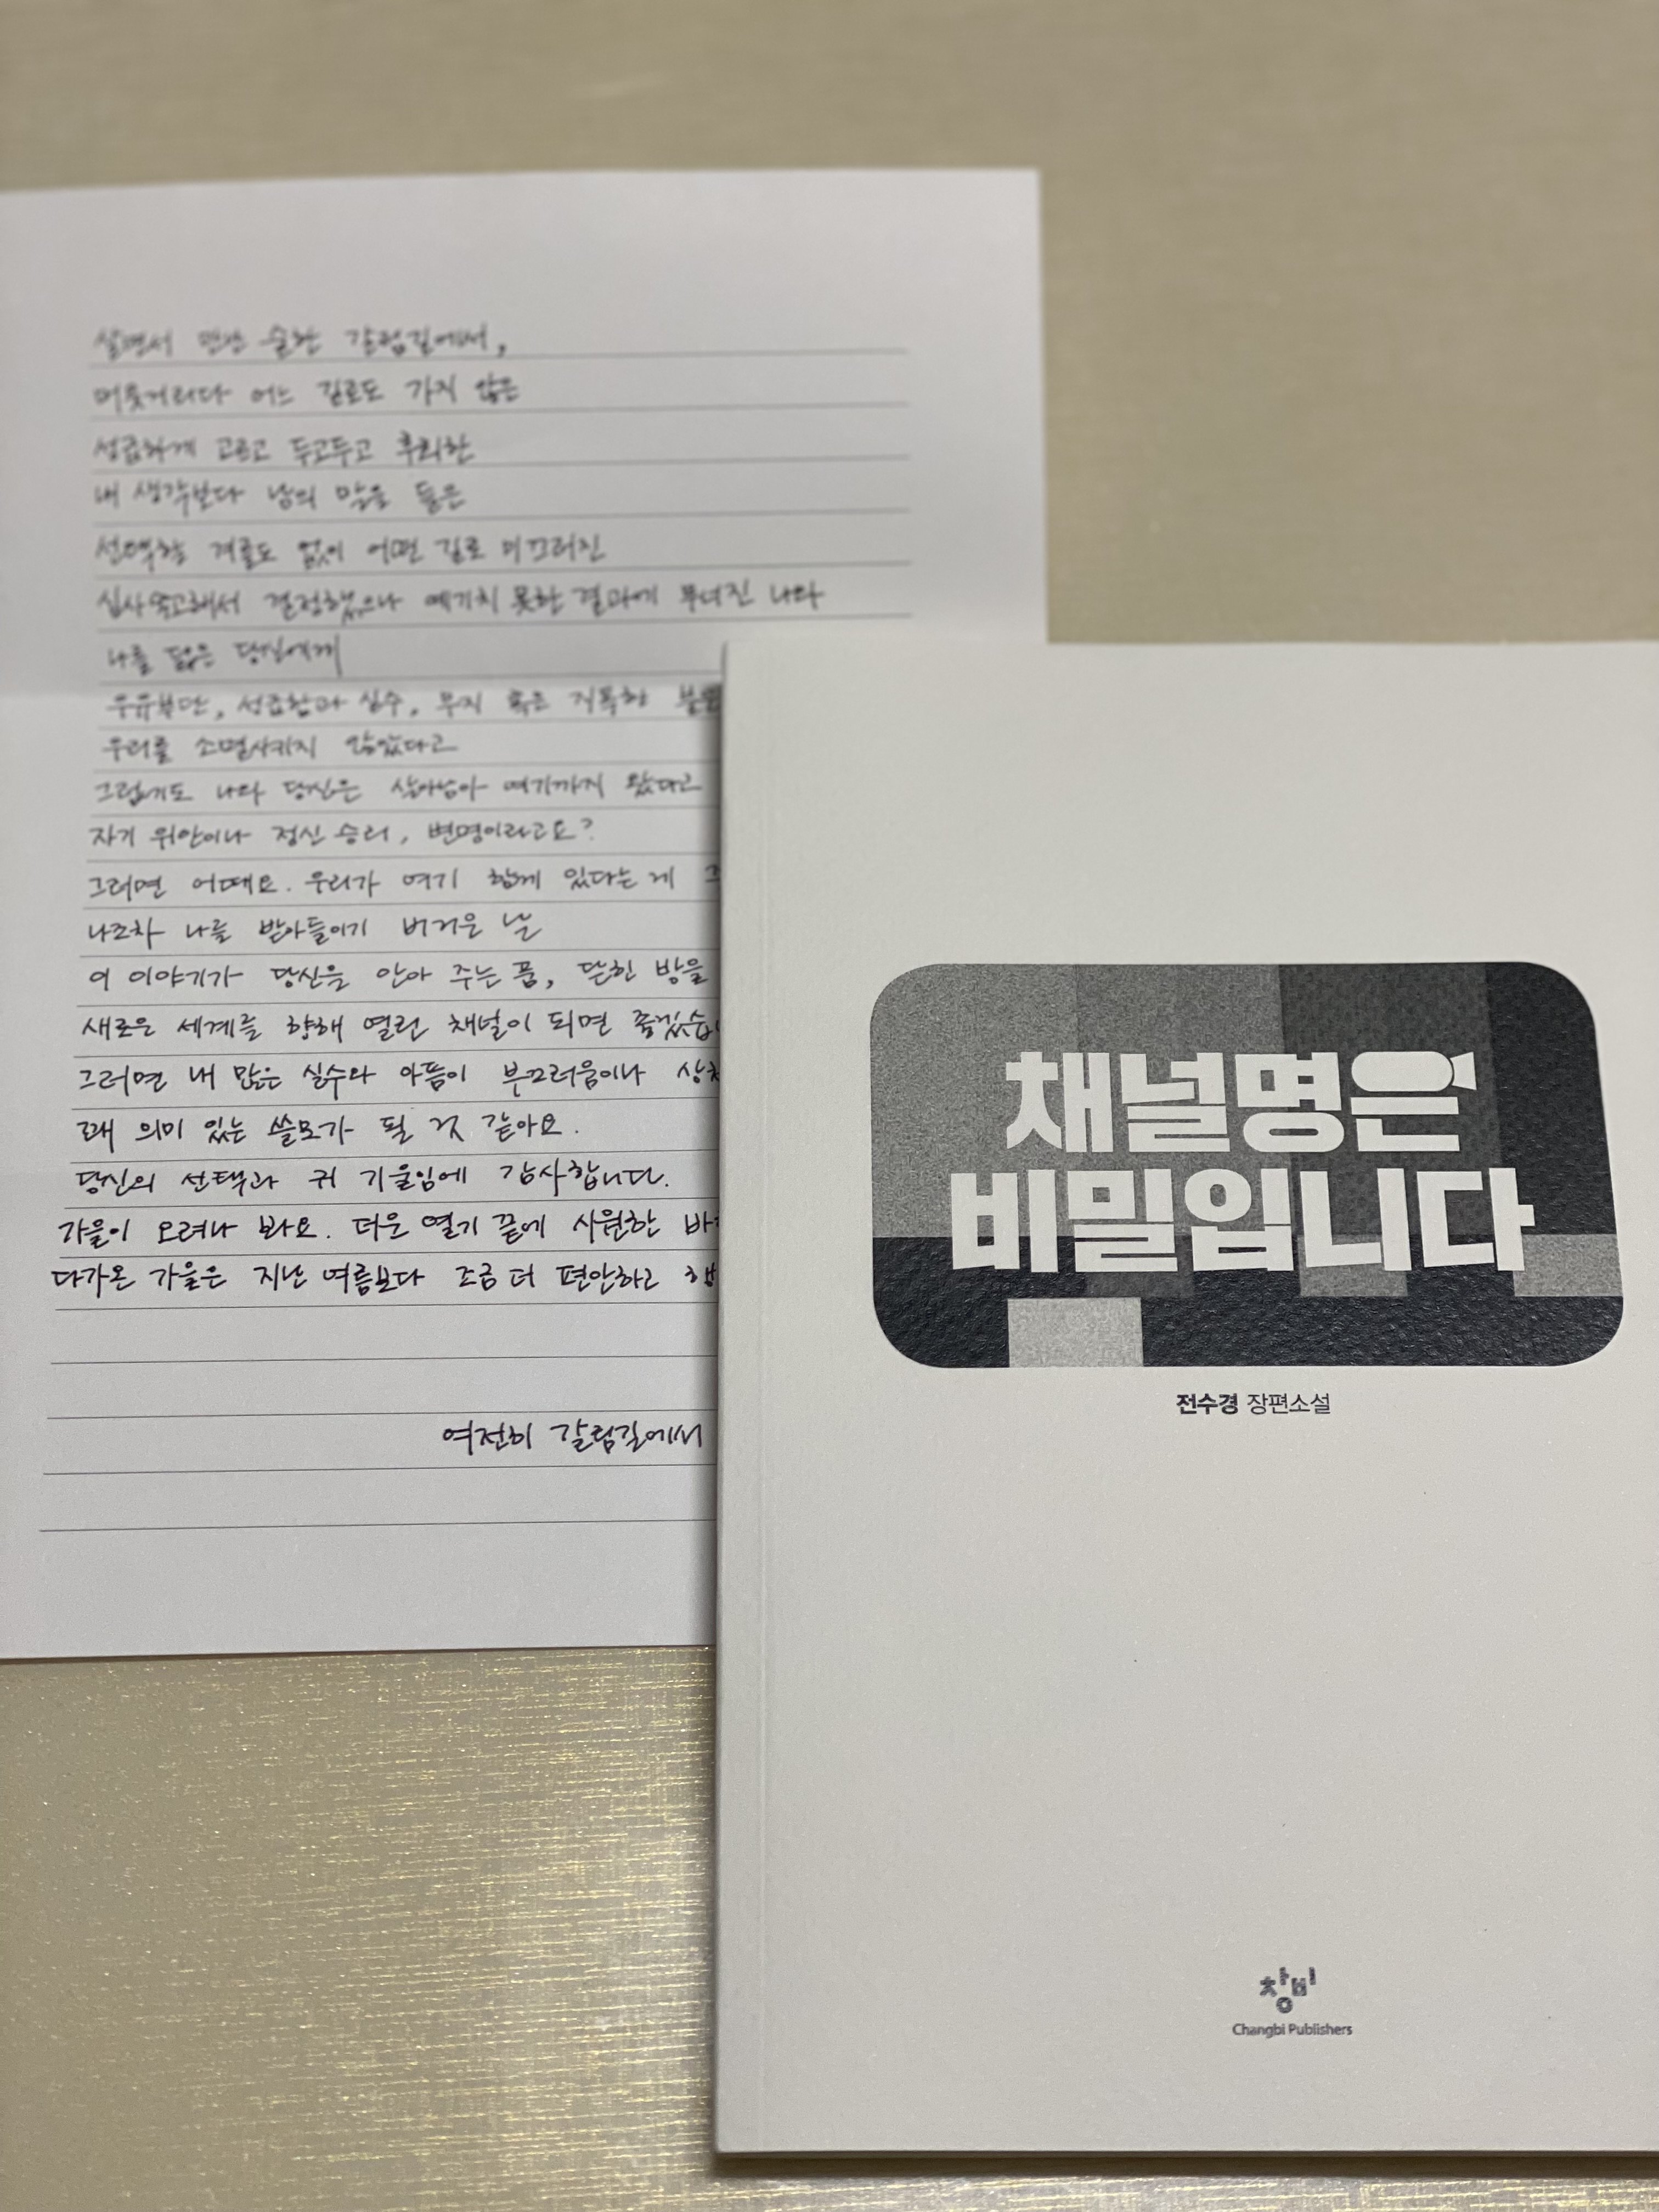 살면서 만난 숱한 갈림길에서,
머뭇거리다 어느 길로도 가지 않은
성급하게 고르고 두고두고 후회한
내 생각보다 남의 말을 들은
선택할 겨를도 없이 어떤 길로 미끄러진
심사숙고해서 결정했으나 예기치 못한 결과에 무너진 나와
나를 닮은 당신에게
우유부단, 성급함과 실수, 무지 혹은 지독한
우리를 소멸시키지 않았다고
그럼에도 나와 당신은 살아남아 여기까지 왔다고
자기 위안이나 정신 승리, 변명이라고요?
그러면 어때요. 우리가 여기 함께 있다는 게
나조차 나를 받아들이기 버거운 날
이 이야기가 당신을 안아 주는 품, 닫힌 방을
새로운 세계를 향해 열린 채널이 되면 좋겠습
그러면 내 많은 실수와 아픔이 부끄러움이나
래 의미 있는 쓸모가 될 것 같아요.
당신의 선택과 귀 기울임에 감사합니다.
가을이 오려나 봐요. 더운 열기 끝에 시원한
다가온 가을은 지난 여름보다 조금 더 편안하고
여전히 갈림길에서
채널명은
비밀입니다
전수경 장편소설
창비
Changbi Publishers